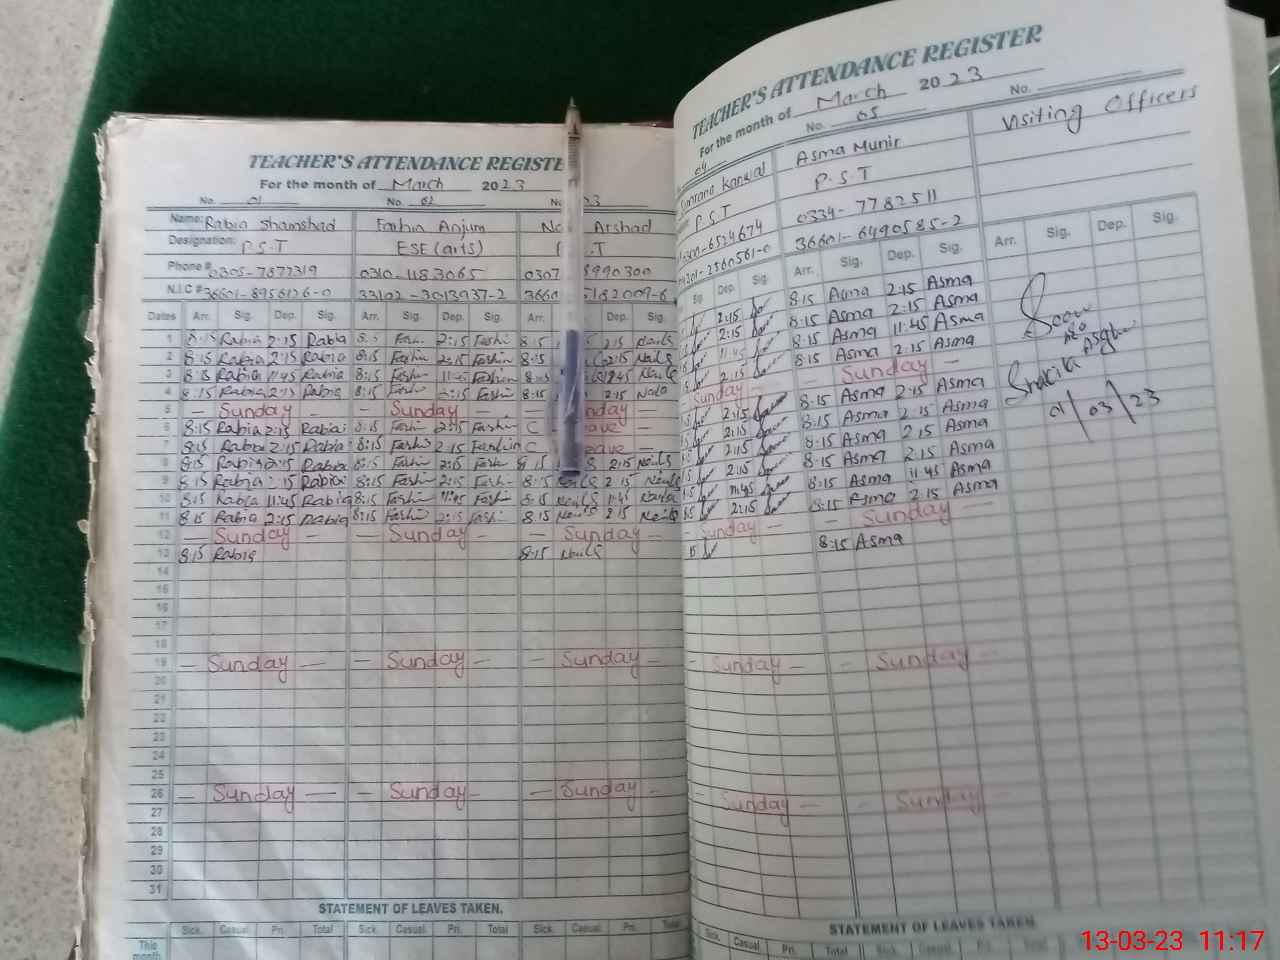 TEACHER'S ATTENDANCE REGISTE
For the month of March 2023
No. 01 No. 02 No. 03
Name: Rabia Shamshad Fashin Anjum Arshad
Designation: P.S.T ESE (arts) .T
Phone # 0305-7877319 0310-1183065 0307 8990300
N.I.C # 36601-8956126-0 33102-3013937-2 3660 182009-6
Dates Arr. Sig. Dep. Sig. Arr. Sig. Dep. Sig. Arr. Dep. Sig.
1 8:15 Rabia 2:15 Rabia 8:15 Fashin 2:15 Fashin 8:15 2:15 Naila
2 8:15 Rabia 2:15 Rabia 8:15 Fashin 2:15 Fashin 8:15 2:15 Naila
3 8:15 Rabia 11:45 Rabia 8:15 Fashin 11:45 Fashin 8:15 11:45 Naila
4 8:15 Rabia 2:15 Rabia 8:15 Fashin 2:15 Fashin 8:15 2:15 Naila
5 — Sunday — — Sunday — — Sunday
6 8:15 Rabia 2:15 Rabia 8:15 Fashin 2:15 Fashin C leave
7 8:15 Rabia 2:15 Rabia 8:15 Fashin 2:15 Fashin C leave
8 8:15 Rabia 2:15 Rabia 8:15 Fashin 2:15 Fashin 8:15 2:15 Naila
9 8:15 Rabia 2:15 Rabia 8:15 Fashin 2:15 Fashin 8:15 Naila 2:15 Naila
10 8:15 Rabia 11:45 Rabia 8:15 Fashin 11:45 Fashin 8:15 Naila 11:45 Naila
11 8:15 Rabia 2:15 Rabia 8:15 Fashin 2:15 Fashin 8:15 Naila 2:15 Naila
12 — Sunday — — Sunday — — Sunday —
13 8:15 Rabia 8:15 Naila
14
15
16
17
18
19 — Sunday — — Sunday — — Sunday —
20
21
22
23
24
25
26 — Sunday — — Sunday — — Sunday —
27
28
29
30
31
STATEMENT OF LEAVES TAKEN.
Sick. Casual. Pri. Total Sick. Casual. Pri. Total Sick. Casual. Pri. Total
This month
TEACHER'S ATTENDANCE REGISTER
For the month of March 2023
04 No. 05 No.
Kanwal Asma Munir Visiting Officers
P.S.T P.S.T
300-6524674 0334-7782511
301-2560561-0 36601-6490585-2
Sig. Dep. Sig. Arr. Sig. Dep. Sig. Arr. Sig. Dep. Sig.
2:15 8:15 Asma 2:15 Asma
2:15 8:15 Asma 2:15 Asma
11:45 8:15 Asma 11:45 Asma
2:15 8:15 Asma 2:15 Asma
Sunday — — Sunday —
2:15 8:15 Asma 2:15 Asma
2:15 8:15 Asma 2:15 Asma
2:15 8:15 Asma 2:15 Asma
2:15 8:15 Asma 2:15 Asma
11:45 8:15 Asma 11:45 Asma
2:15 8:15 Asma 2:15 Asma
— Sunday — — Sunday —
15 8:15 Asma
— Sunday — — Sunday —
— Sunday — — Sunday —
Asghar
01/03/23
STATEMENT OF LEAVES TAKEN
Sick. Casual. Pri. Total Sick. Casual. Pri.
13-03-23 11:17